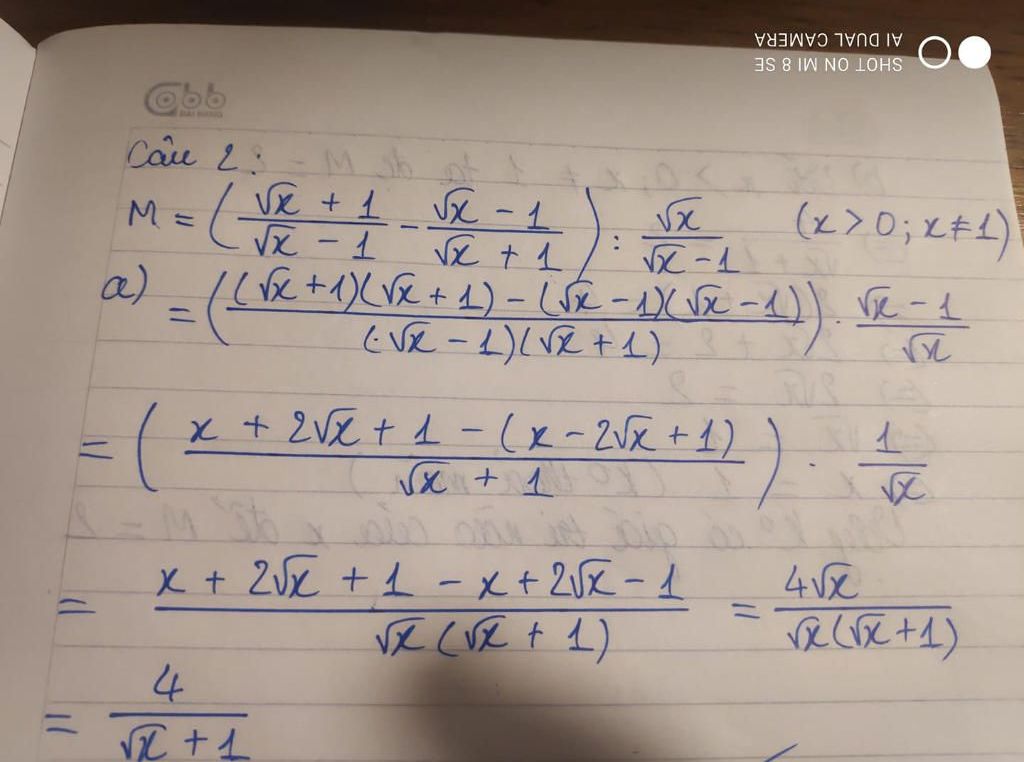 SHOT ON MI 8 SE
AI DUAL CAMERA
Câu 2:
M = ( (√x + 1)/(√x - 1) - (√x - 1)/(√x + 1) ) : √x/(√x - 1) (x > 0; x ≠ 1)
a) = ( ((√x + 1)(√x + 1) - (√x - 1)(√x - 1))/((√x - 1)(√x + 1)) ) . (√x - 1)/√x
= ( (x + 2√x + 1 - (x - 2√x + 1))/(√x + 1) ) . 1/√x
= (x + 2√x + 1 - x + 2√x - 1)/(√x(√x + 1)) = 4√x/(√x(√x + 1))
= 4/(√x + 1)